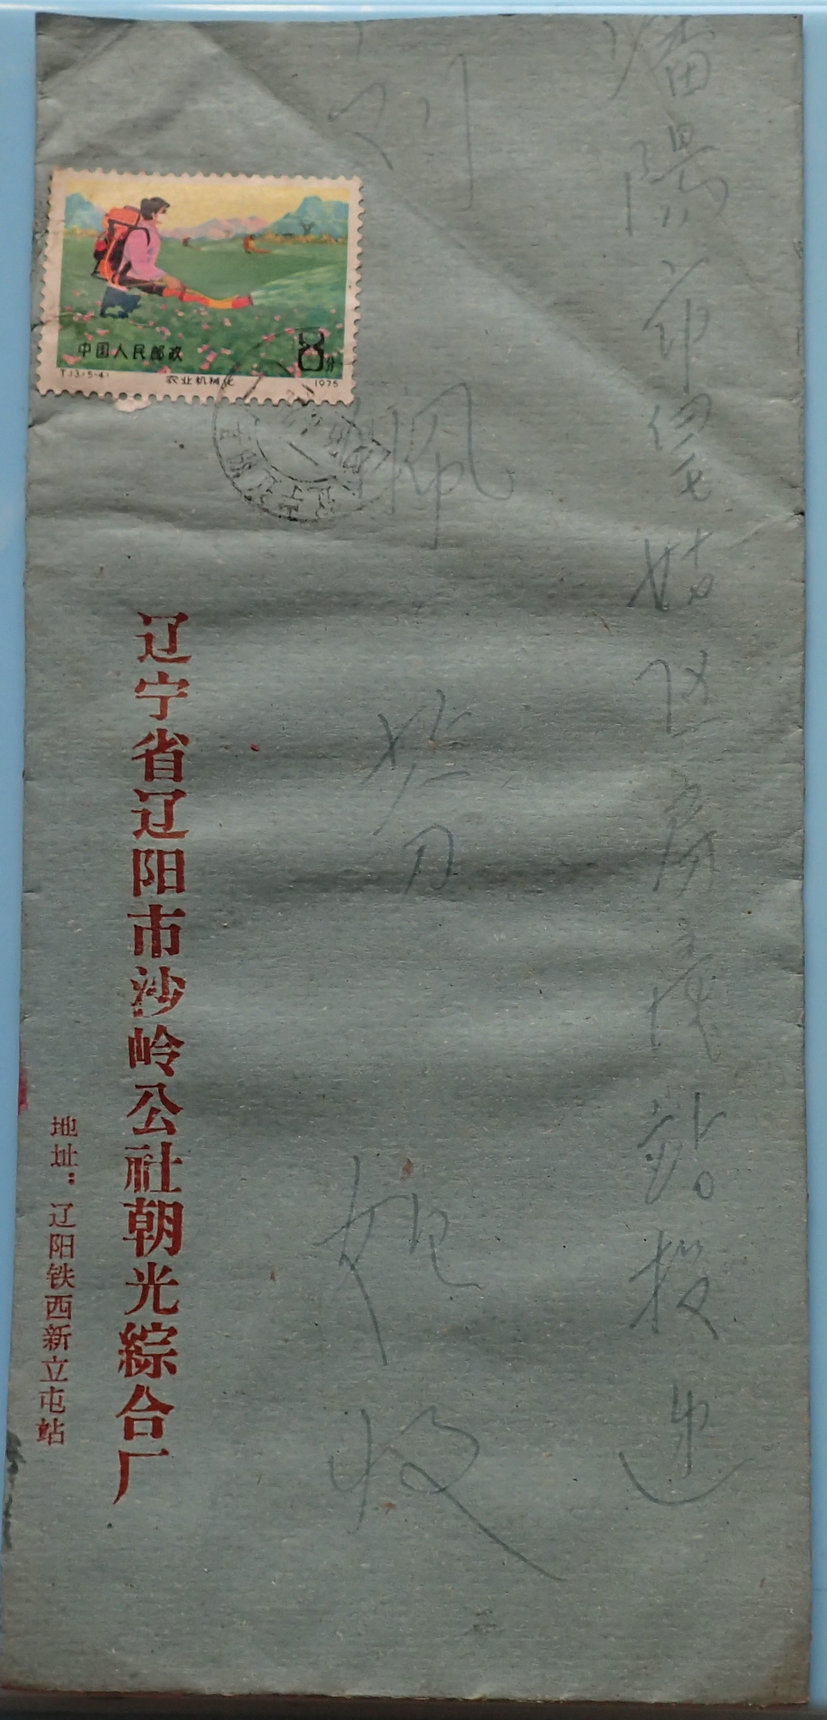 瀋陽市皇姑区房產站投递
刘佩芬
收
中国人民邮政
8分
T.13.(5-4)
农业机械化
1975
辽宁省辽阳市沙岭公社朝光綜合厂
地址：辽阳铁西新立屯站